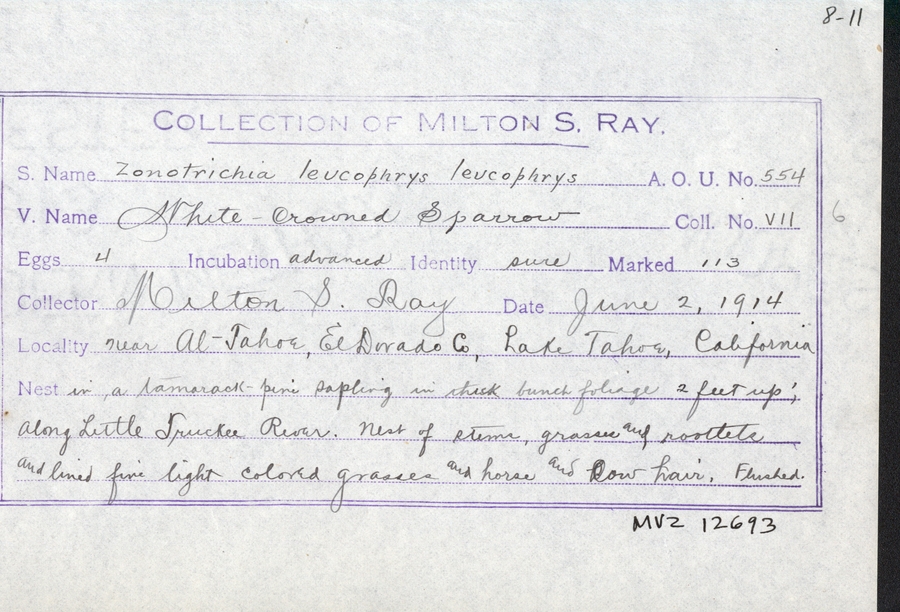 8-11
COLLECTION OF MILTON S. RAY.
S. Name Zonotrichia leucophrys leucophrys A. O. U. No. 554
V. Name White-Crowned Sparrow Coll. No. VII 6
Eggs 4 Incubation advanced Identity sure Marked 113
Collector Milton S. Ray Date June 2, 1914
Locality near Al-Tahoe, El Dorado Co, Lake Tahoe, California
Nest in a tamarack-pine sapling in thick bunch foliage 2 feet up;
along Little Truckee River. Nest of stems, grasses and rootlets
and lined fine light colored grasses and horse and cow hair. Flushed.
MVZ 12693